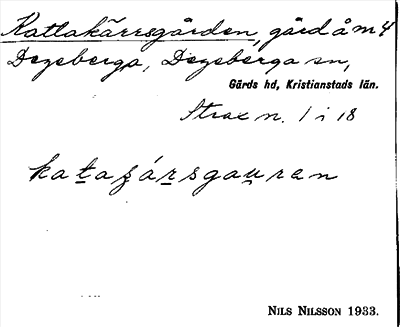 Kattakärrsgården, gård å m 4
Degeberga, Degeberga sn,
Gärds hd, Kristianstads län.
Strax n. 1 i 18
NILS NILSSON 1933.